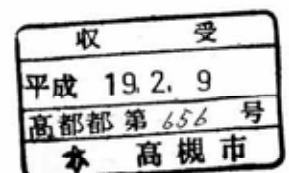 収 受
平成 19.2.9
高都都第656号
本 高槻市